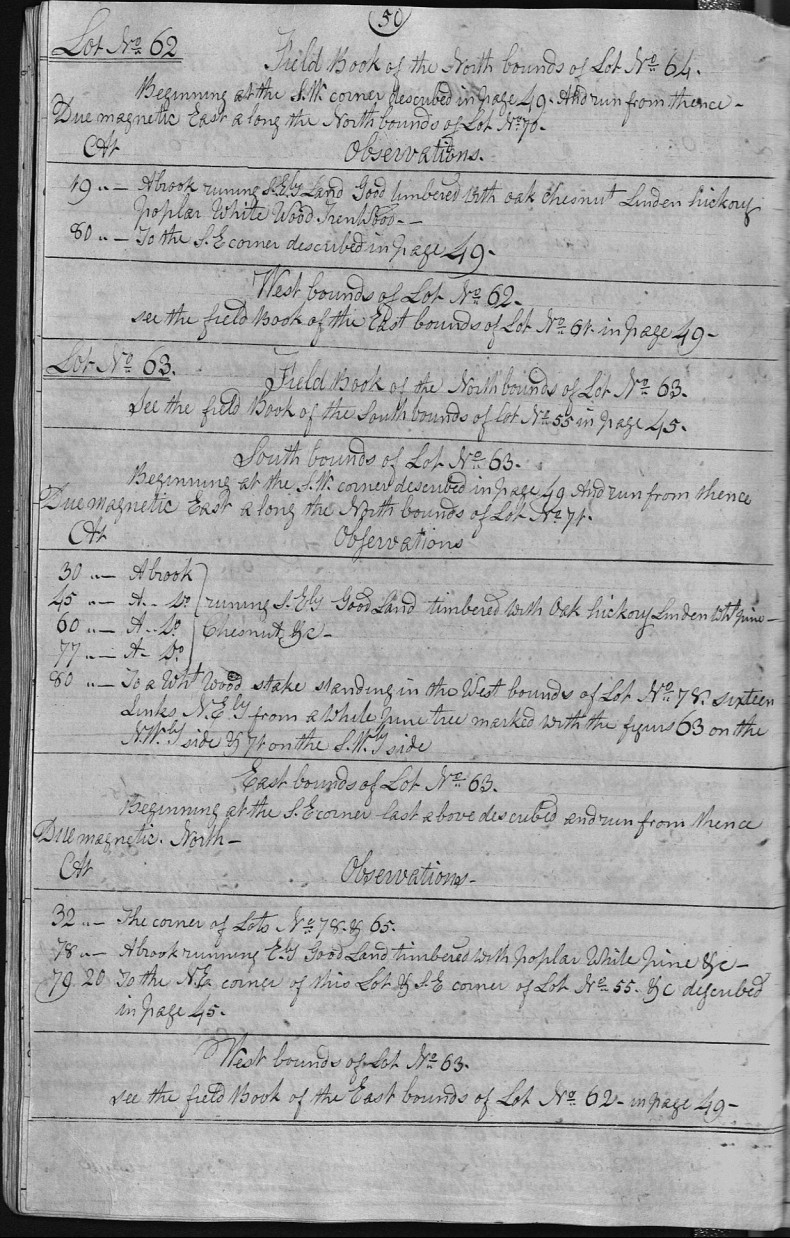 50
Lot No. 62
Field Book of the North bounds of Lot No. 64.
Beginning at the S.W. corner described in page 49. And run from thence -
Due magnetic East along the North bounds of Lot No. 70.
Ch Observations.
19 " — A brook runing S.Ely Land Good timbered with oak Chesnut Linden hickory
poplar White Wood — —
80 " — To the S.E corner described in page 49 -
West bounds of Lot No. 62.
see the field Book of the East bounds of Lot No. 61. in page 49 -
Lot No. 63.
Field Book of the North bounds of Lot No. 63.
See the field Book of the South bounds of Lot No. 55 in page 45.
South bounds of Lot No. 63.
Beginning at the S.W. corner described in page 49 And run from thence
Due magnetic East along the North bounds of Lot No. 71.
Ch Observations
30 " — A brook
45 " — A -- Do runing S.Ely Good Land timbered with Oak hickory Linden Wht pine -
60 " — A -- Do Chesnut, &c -
77 " — A - Do
80 " — To a Wht Wood stake standing in the West bounds of Lot No. 78. sixteen
Links N.Ely from a White pine tree marked with the figurs 63 on the
N.Wly side & 71 on the S.Wly side
East bounds of Lot No. 63.
Beginning at the S.E corner last above described and run from thence
Due magnetic. North -
Ch Observations -
32 " — The corner of Lots No. 78. & 65.
78 " — A brook running Ely Good Land timbered with poplar White pine &c -
79. 20 To the N.E corner of this Lot & S.E corner of Lot No. 55. &c described
in page 45.
West bounds of Lot No. 63.
see the field Book of the East bounds of Lot No. 62 - in page 49 -